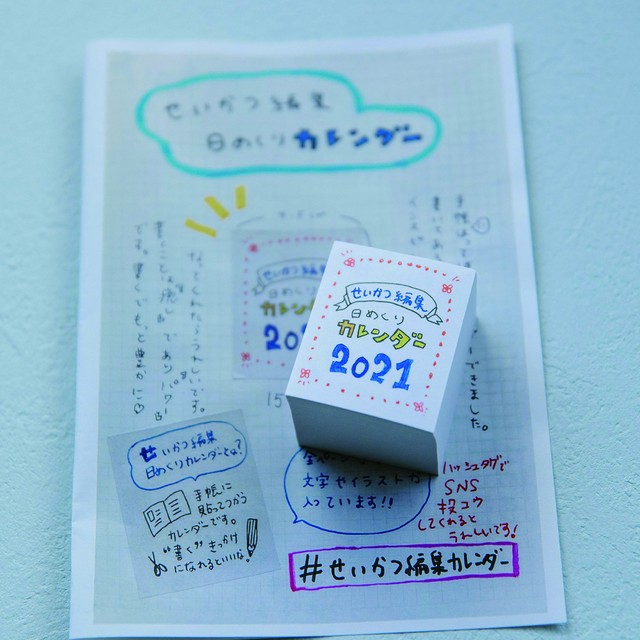 せいかつ編集
日めくりカレンダー
せいかつ編集
日めくり
カレンダー
2021
せいかつ編集
日めくり
カレンダー
できました。
なってくれたらうれしいです。
書くことは癒し
であり
です。書くでもっと豊かに♡
15
せいかつ編集
日めくりカレンダーとは?
手帳に
貼ってつかう
カレンダーです。
"書く"きっかけ
になれるといいな!
文字やイラストが
入っています!!
ハッシュタグで
SNS
投コウ
してくれると
うれしいです!
#せいかつ編集カレンダー